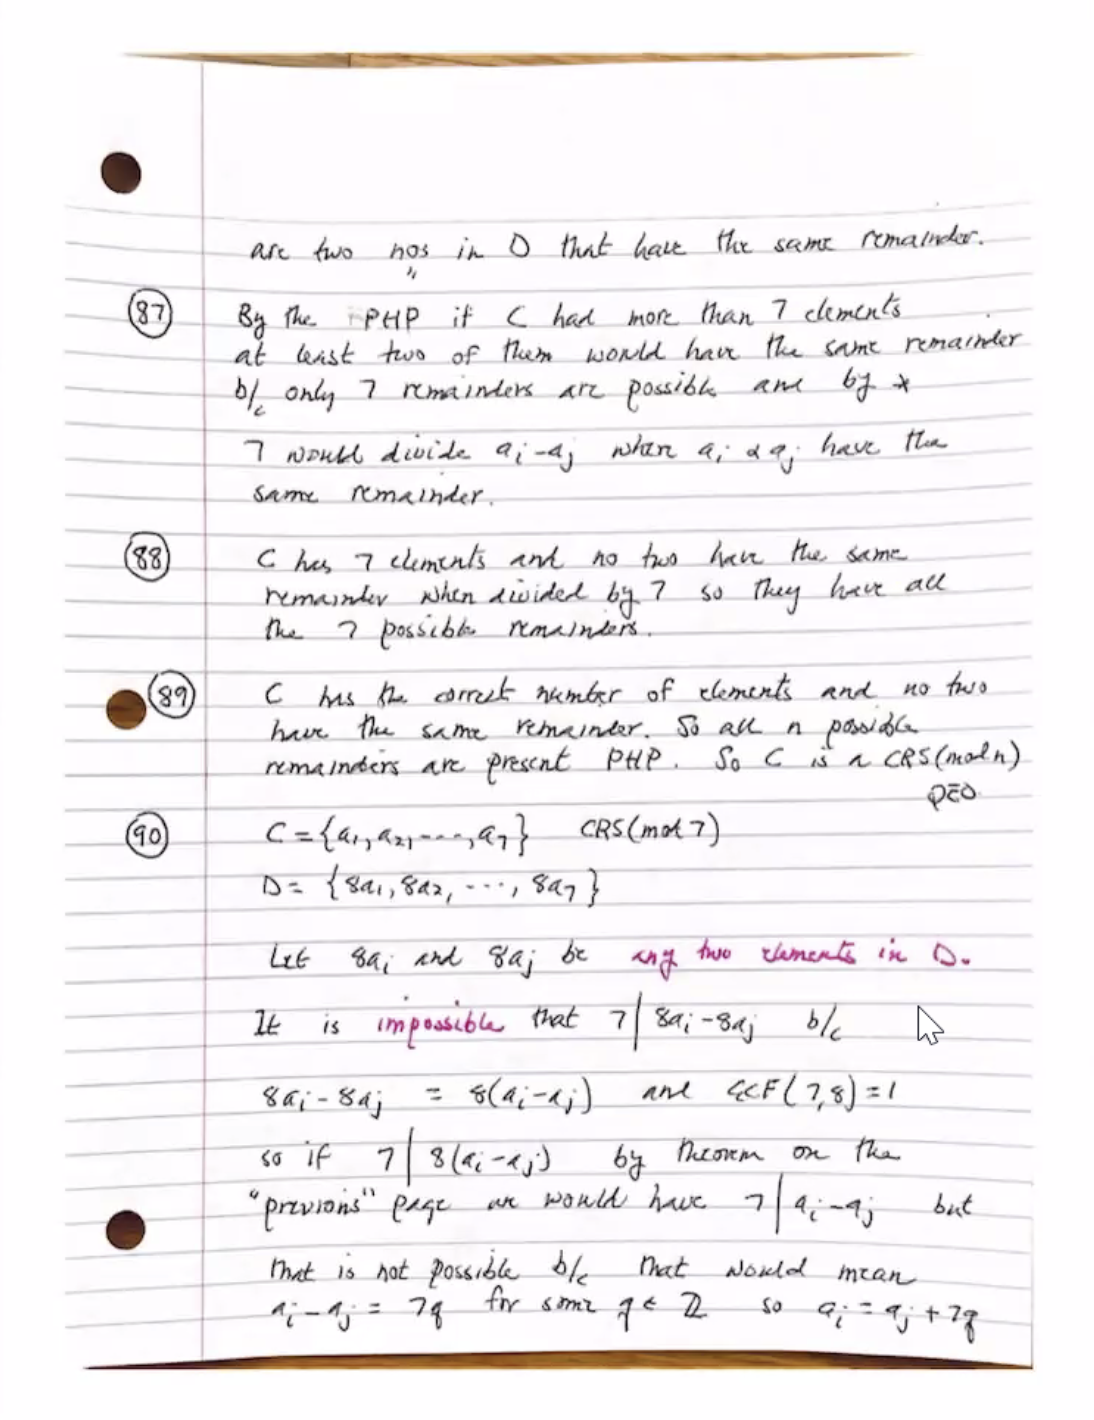 are two nos in D that have the same remainder.
"
87 By the PHP if C had more than 7 elements
at least two of them would have the same remainder
b/c only 7 remainders are possible and by *
7 would divide aᵢ-aⱼ where aᵢ & aⱼ have the
same remainder.
88 C has 7 elements and no two have the same
remainder when divided by 7 so they have all
the 7 possible remainders.
89 C has the correct number of elements and no two
have the same remainder. So all n possible
remainders are present PHP. So C is a CRS(mod n)
QED
90 C = {a₁, a₂, ----, a₇} CRS(mod 7)
D = {8a₁, 8a₂, ---, 8a₇}
Let 8aᵢ and 8aⱼ be any two elements in D.
It is impossible that 7 | 8aᵢ-8aⱼ b/c
8aᵢ - 8aⱼ = 8(aᵢ-aⱼ) and GCF(7,8)=1
so if 7 | 8(aᵢ-aⱼ) by theorem on the
"previous" page we would have 7 | aᵢ-aⱼ but
that is not possible b/c that would mean
aᵢ - aⱼ = 7q for some q ∈ ℤ so aᵢ = aⱼ + 7q